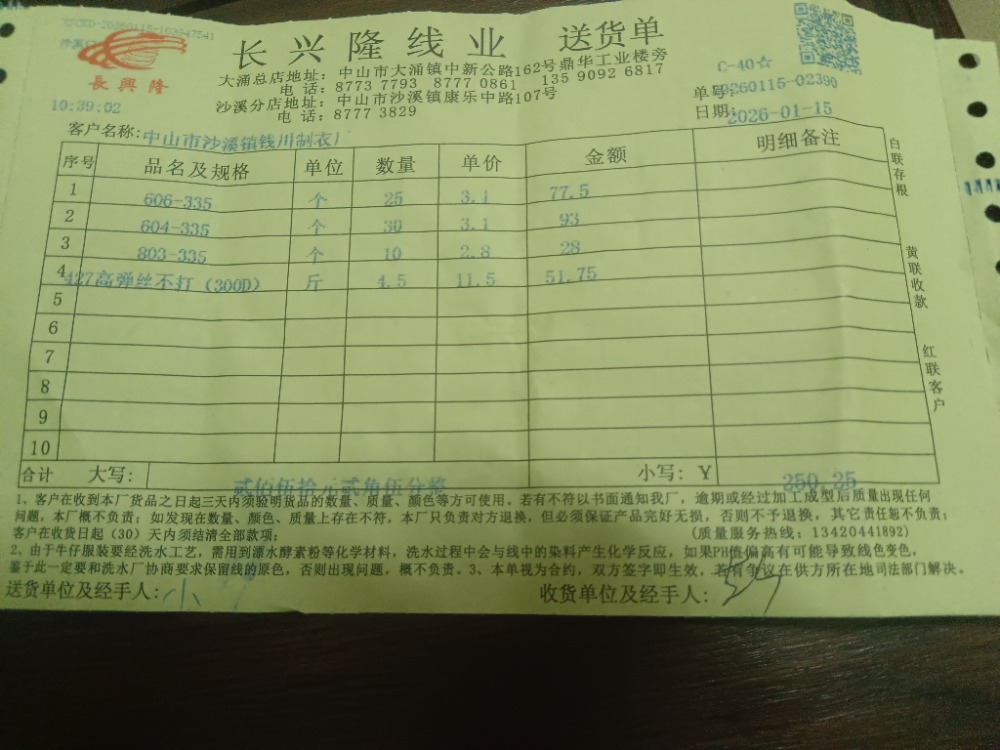 长兴隆线业 送货单
長興隆
大涌总店地址：中山市大涌镇中新公路162号鼎华工业楼旁
电话：8773 7793 8777 0861 135 9092 6817
沙溪分店地址：中山市沙溪镇康乐中路107号
电话：8777 3829
C-40☆
单号：20260115-02390
日期：2026-01-15
10:39:02
客户名称：中山市沙溪镇钱川制衣厂
序号 品名及规格 单位 数量 单价 金额 明细备注
1 606-335 个 25 3.1 77.5
2 604-335 个 30 3.1 93
3 803-335 个 10 2.8 28
4 427高弹丝不打（300D） 斤 4.5 11.5 51.75
5
6
7
8
9
10
合计 大写： 贰佰伍拾 贰角伍分整 小写：Y 250.25
白联存根
黄联收款
红联客户
1、客户在收到本厂货品之日起三天内须验明货品的数量、质量、颜色等方可使用。若有不符以书面通知我厂，逾期或经过加工成型后质量出现任何
问题，本厂概不负责；如发现在数量、颜色、质量上存在不符，本厂只负责对方退换，但必须保证产品完好无损，否则不予退换，其它责任恕不负责；
客户在收货日起（30）天内须结清全部款项； （质量服务热线：13420441892）
2、由于牛仔服装要经洗水工艺，需用到漂水酵素粉等化学材料，洗水过程中会与线中的染料产生化学反应，如果PH值偏高有可能导致线色变色，
鉴于此一定要和洗水厂协商要求保留线的原色，否则出现问题，概不负责。3、本单视为合约，双方签字即生效，若有争议在供方所在地司法部门解决。
送货单位及经手人：小
收货单位及经手人：